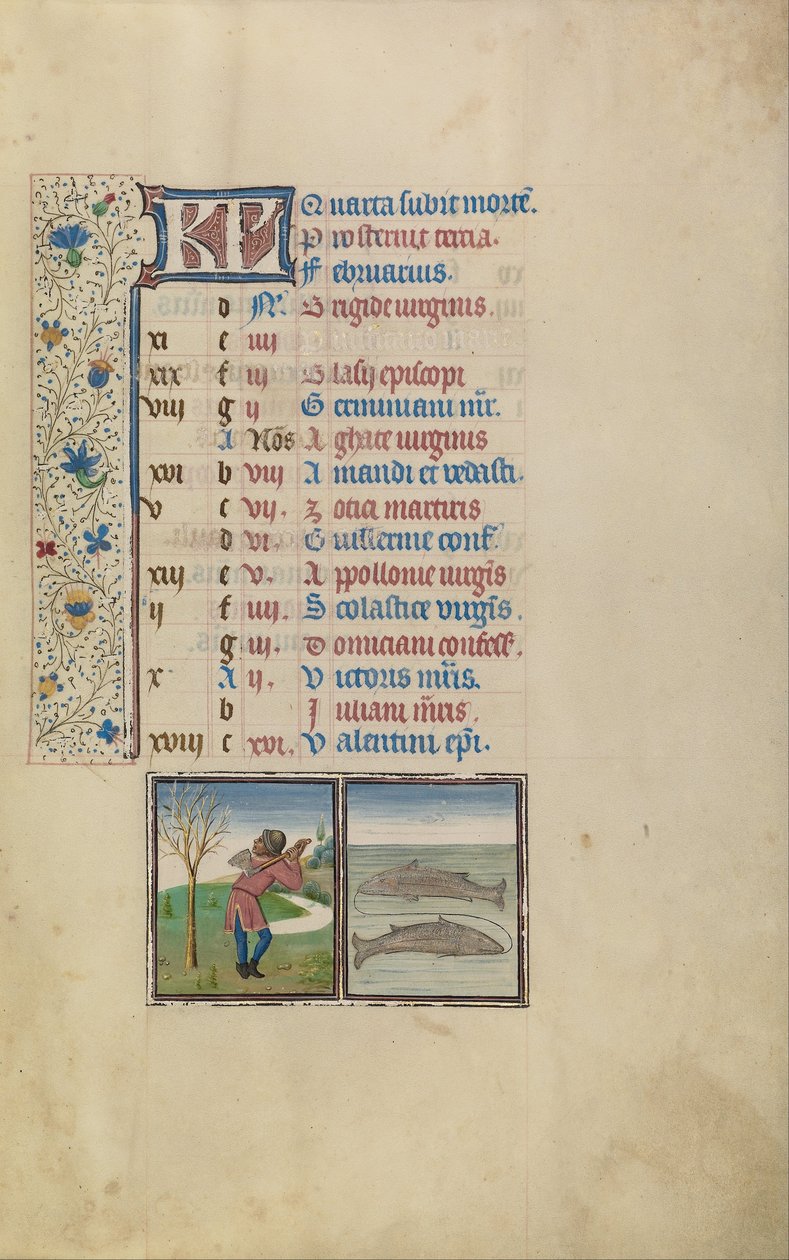 KL Quarta subit morte͂.
Prosternit tercia.
Februarius.
d N. Brigide uirginis.
xi e iiij
xix f iij Blasij episcopi
viij g ij Geminiani mr̃.
A Nõs Aghate uirginis
xvi b viij Amandi et vedasti.
v c vij. Zotici martiris
d vi. Guillerme conf.
xiij e v. Appollonie uirgĩs
ij f iiij. Scolastice virgĩs.
g iij. Domiciani confess.
x A ij. Victoris mr̃is.
b Iuliani mr̃is.
xviij c xvi. Valentini ep̃i.